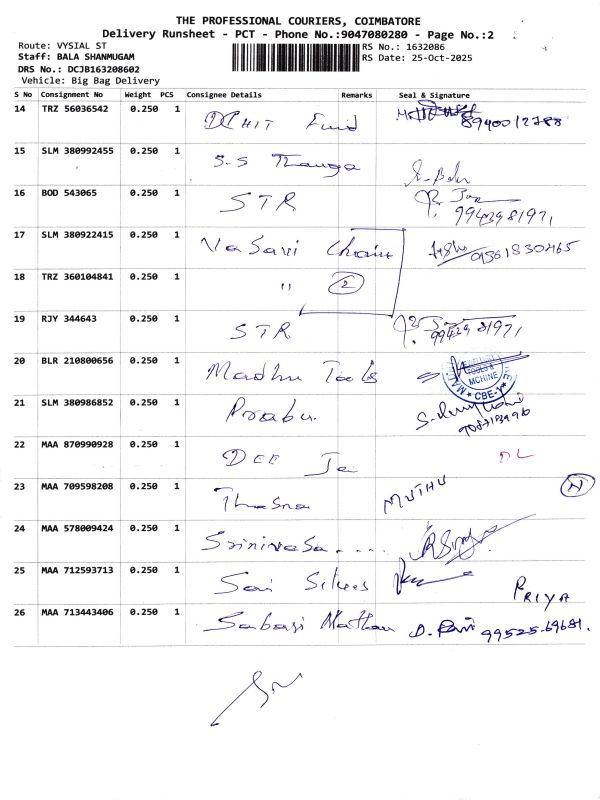 THE PROFESSIONAL COURIERS, COIMBATORE
Delivery Runsheet - PCT - Phone No.:9047080280 - Page No.:2
Route: VYSIAL ST RS No.: 1632086
Staff: BALA SHANMUGAM RS Date: 25-Oct-2025
DRS No.: DCJB163208602
Vehicle: Big Bag Delivery
S No Consignment No Weight PCS Consignee Details Remarks Seal & Signature
14 TRZ 56036542 0.250 1 DCHIT Fund 8940012788
15 SLM 380992455 0.250 1 S.S Thanga
16 BOD 543065 0.250 1 STR 9942981971
17 SLM 380922415 0.250 1 Vasavi Chain
18 TRZ 360104841 0.250 1 " 2
19 RJY 344643 0.250 1 STR 9942981971
20 BLR 210800656 0.250 1 Madhu Tools TOOLS & MCHINE CBE-1
21 SLM 380986852 0.250 1 Prabu
22 MAA 870990928 0.250 1 DEE Je DL
23 MAA 709598208 0.250 1 MUTHU N
24 MAA 578009424 0.250 1 Srinivasa....
25 MAA 712593713 0.250 1 Sai Silvers PRIYA
26 MAA 713443406 0.250 1 Sabari Mathan D. Ravi 99525-69681.